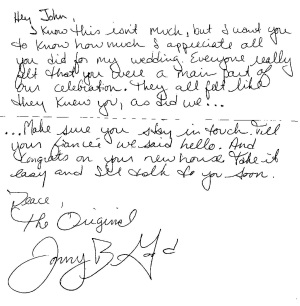 Hey John,
I know this isn't much, but I want you
to know how much I appreciate all
you did for my wedding. Everyone really
felt that you were a main part of
our celebration. They all felt like
they knew you, as did we...
...Make sure you stay in touch. Tell
your fianceé we said hello. And
Congrats on your new house. Take it
easy and I'll talk to you soon.
Peace,
The Original
Jonny B